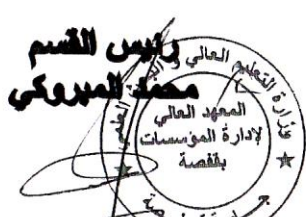 رئيس القسم
محمد المبروكي
وزارة التعليم العالي و البحث العلمي
المعهد العالي
لإدارة المؤسسات
بقفصة